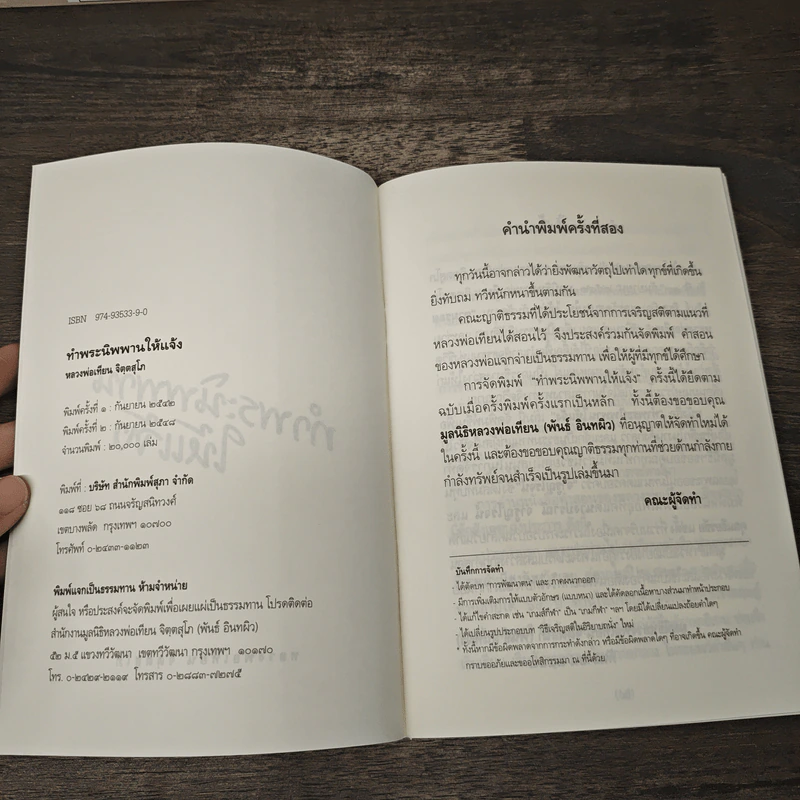 ISBN 974-93533-9-0
ทำพระนิพพานให้แจ้ง
หลวงพ่อเทียน จิตฺตสุโภ
พิมพ์ครั้งที่ ๑ : กันยายน ๒๕๔๒
พิมพ์ครั้งที่ ๒ : กันยายน ๒๕๔๘
จำนวนพิมพ์ : ๒๐,๐๐๐ เล่ม
พิมพ์ที่ : บริษัท สำนักพิมพ์สุภา จำกัด
๑๑๘ ซอย ๖๘ ถนนจรัญสนิทวงศ์
เขตบางพลัด กรุงเทพฯ ๑๐๗๐๐
โทรศัพท์ ๐-๒๔๓๓-๑๑๒๓
พิมพ์แจกเป็นธรรมทาน ห้ามจำหน่าย
ผู้สนใจ หรือประสงค์จะจัดพิมพ์เพื่อเผยแผ่เป็นธรรมทาน โปรดติดต่อ
สำนักงานมูลนิธิหลวงพ่อเทียน จิตฺตสุโภ (พันธ์ อินทผิว)
๕๒ ม.๕ แขวงทวีวัฒนา เขตทวีวัฒนา กรุงเทพฯ ๑๐๑๗๐
โทร. ๐-๒๔๒๙-๒๑๑๙ โทรสาร ๐-๒๘๘๓-๗๒๗๕
คำนำพิมพ์ครั้งที่สอง
ทุกวันนี้อาจกล่าวได้ว่ายิ่งพัฒนาวัตถุไปเท่าใด ทุกข์ที่เกิดขึ้น
ยิ่งทับถม ทวีหนักหนาขึ้นตามกัน
คณะญาติธรรมที่ได้ประโยชน์จากการเจริญสติตามแนวที่
หลวงพ่อเทียนได้สอนไว้ จึงประสงค์ร่วมกันจัดพิมพ์ คำสอน
ของหลวงพ่อแจกจ่ายเป็นธรรมทาน เพื่อให้ผู้ที่มีทุกข์ได้ศึกษา
การจัดพิมพ์ "ทำพระนิพพานให้แจ้ง" ครั้งนี้ได้ยึดตาม
ฉบับเมื่อครั้งพิมพ์ครั้งแรกเป็นหลัก ทั้งนี้ต้องขอขอบคุณ
มูลนิธิหลวงพ่อเทียน (พันธ์ อินทผิว) ที่อนุญาตให้จัดทำใหม่ได้
ในครั้งนี้ และต้องขอขอบคุณญาติธรรมทุกท่านที่ช่วยด้านกำลังกาย
กำลังทรัพย์จนสำเร็จเป็นรูปเล่มขึ้นมา
คณะผู้จัดทำ
บันทึกการจัดทำ
- ได้ตัดบท "การพัฒนาตน" และ ภาคผนวกออก
- มีการเพิ่มเติมการให้แบบตัวอักษร (แบบหนา) และได้คัดลอกเนื้อหาบางส่วนมาทำหน้าประกอบ
- ได้แก้ไขคำสะกด เช่น "เกมส์กีฬา" เป็น "เกมกีฬา" ฯลฯ โดยมิได้เปลี่ยนแปลงถ้อยคำใดๆ
- ได้เปลี่ยนรูปประกอบบท "วิธีเจริญสติในอิริยาบถนั่ง" ใหม่
* ทั้งนี้หากมีข้อผิดพลาดจากการกระทำดังกล่าว หรือมีข้อผิดพลาดใดๆ ที่อาจเกิดขึ้น คณะผู้จัดทำ
กราบขออภัยและขออโหสิกรรมมา ณ ที่นี้ด้วย